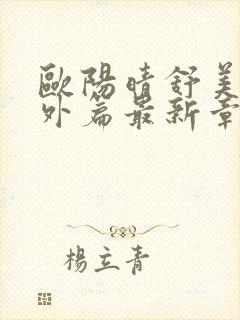 歐陽晴舒美
外篇最新章
楊立青